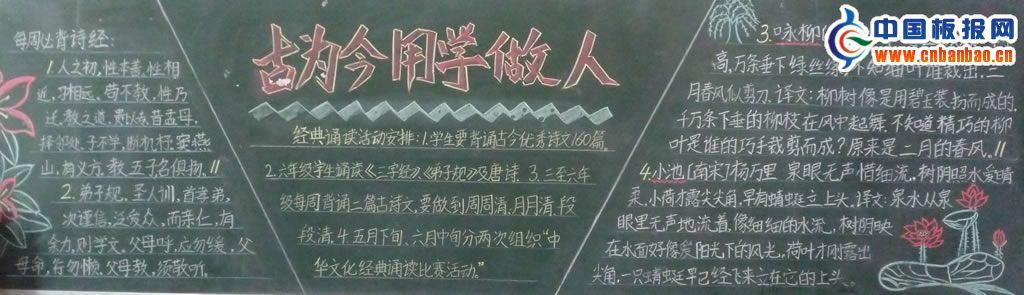 每周必背诗经:
1人之初,性本善,性相
近,习相远,苟不教,性乃
迁,教之道,贵以专,昔孟母,
择邻处,子不学,断机杼,窦燕
山,有义方,教五子,名俱扬,
2.弟子规,圣人训,首孝弟,
次谨信,泛爱众,而亲仁,有
余力,则学文,父母呼,应勿缓,父
母命,行勿懒,父母教,须敬听,
古为今用学做人
经典诵读活动安排:1.学生要背诵古今优秀诗文160篇,
2.六年级学生诵读《三字经》《弟子规》及唐诗.3.三至六年
级每周背诵二篇古诗文,要做到周周清,月月清,段
段清.4.五月下旬、六月中旬分两次组织"中
华文化经典诵读比赛活动."
3.咏柳
高,万条垂下绿丝绦,不知细叶谁裁出,二
月春风似剪刀.译文:柳树像是用碧玉装扮而成的,
千万条下垂的柳枝在风中起舞.不知道精巧的柳
叶是谁的巧手裁剪而成?原来是二月的春风.
4.小池[南宋]杨万里 泉眼无声惜细流,树阴照水爱晴
柔,小荷才露尖尖角,早有蜻蜓立上头.译文:泉水从泉
眼里无声地流着,像细细的水流,树阴映
在水面好像爱阳光下的风光,荷叶才刚露出
尖角,一只蜻蜓早已经飞来立在它的上头.
中国板报网
www.cnbanbao.cn